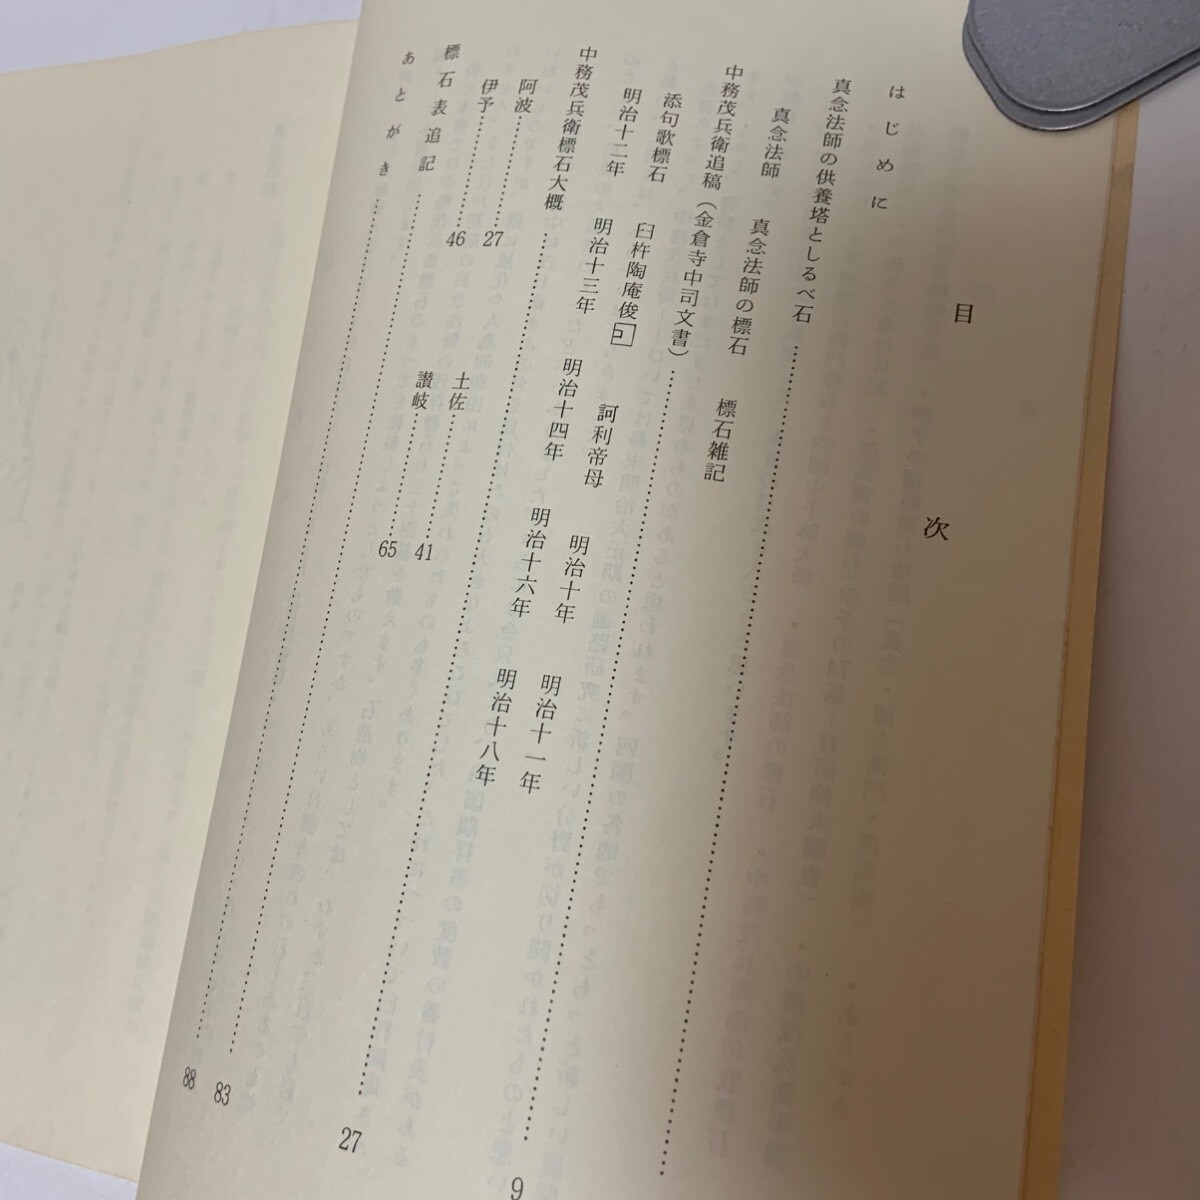 目次
はじめに
真念法師の供養塔としるべ石
真念法師 真念法師の標石 標石雑記
中務茂兵衛追稿(金倉寺中司文書) 9
添句歌標石 臼杵陶庵俊 訶利帝母 明治十年 明治十一年
明治十二年 明治十三年 明治十四年 明治十六年 明治十八年
中務茂兵衛標石大概 27
阿波 27 土佐 41
伊予 46 讃岐 65
標石表追記 83
あとがき 88